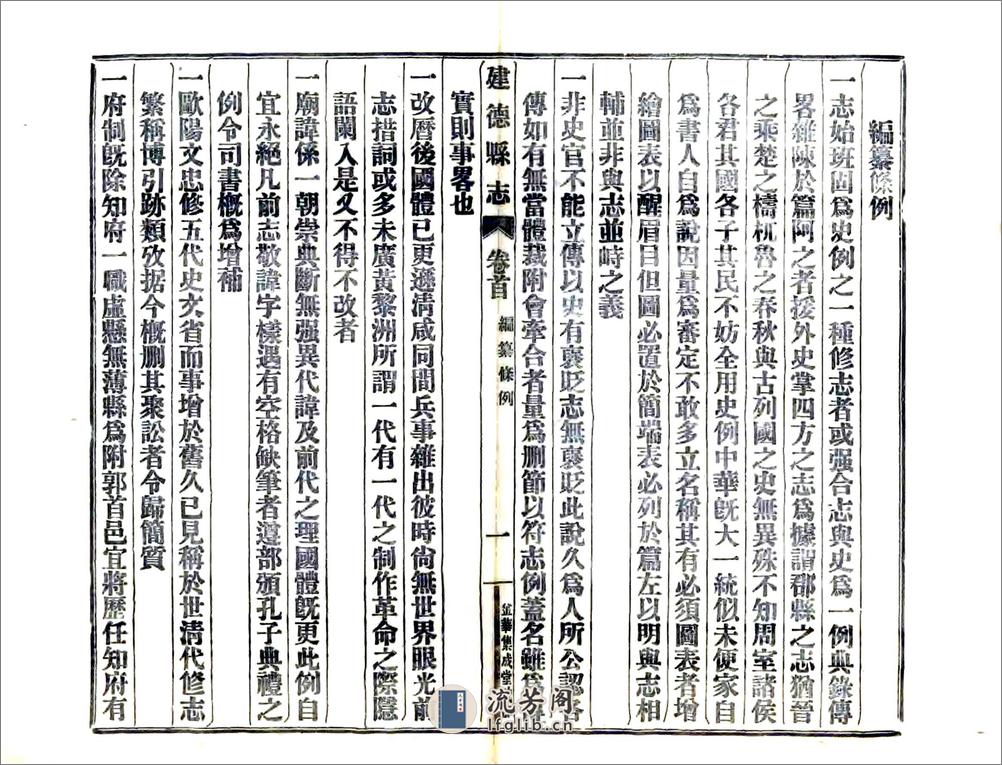 編纂條例
一志始班固爲史例之一種修志者或强合志與史爲一例典錄傳
畧雜陳於篇阿之者援外史掌四方之志爲據謂郡縣之志猶晉
之乘楚之檮杌魯之春秋與古列國之史無異殊不知周室諸侯
各君其國各子其民不妨全用史例中華旣大一統似未便家自
爲書人自爲說因量爲審定不敢多立名稱其有必須圖表者增
繪圖表以醒眉目但圖必置於簡端表必列於篇左以明與志相
輔並非與志並峙之義
一非史官不能立傳以史有襃貶志無襃貶此說久爲人所公認各
傳如有無當體裁附會牽合者量爲删節以符志例蓋名雖爲
實則事畧也
建德縣志 卷首 編纂條例 一 金華集成堂
一改曆後國體已更遜清咸同間兵事雜出彼時尙無世界眼光前
志措詞或多未廣黃黎洲所謂一代有一代之制作革命之際隱
語闌入是又不得不改者
一廟諱係一朝崇典斷無强異代諱及前代之理國體旣更此例自
宜永絕凡前志敬諱字樣遇有空格缺筆者遵部頒孔子典禮之
例令司書概爲增補
一歐陽文忠修五代史文省而事增於舊久已見稱於世清代修志
繁稱博引跡類攷据今概删其聚訟者令歸簡質
一府制旣除知府一職虛懸無薄縣爲附郭首邑宜將歷任知府有
流芳阁
lfglib.cn